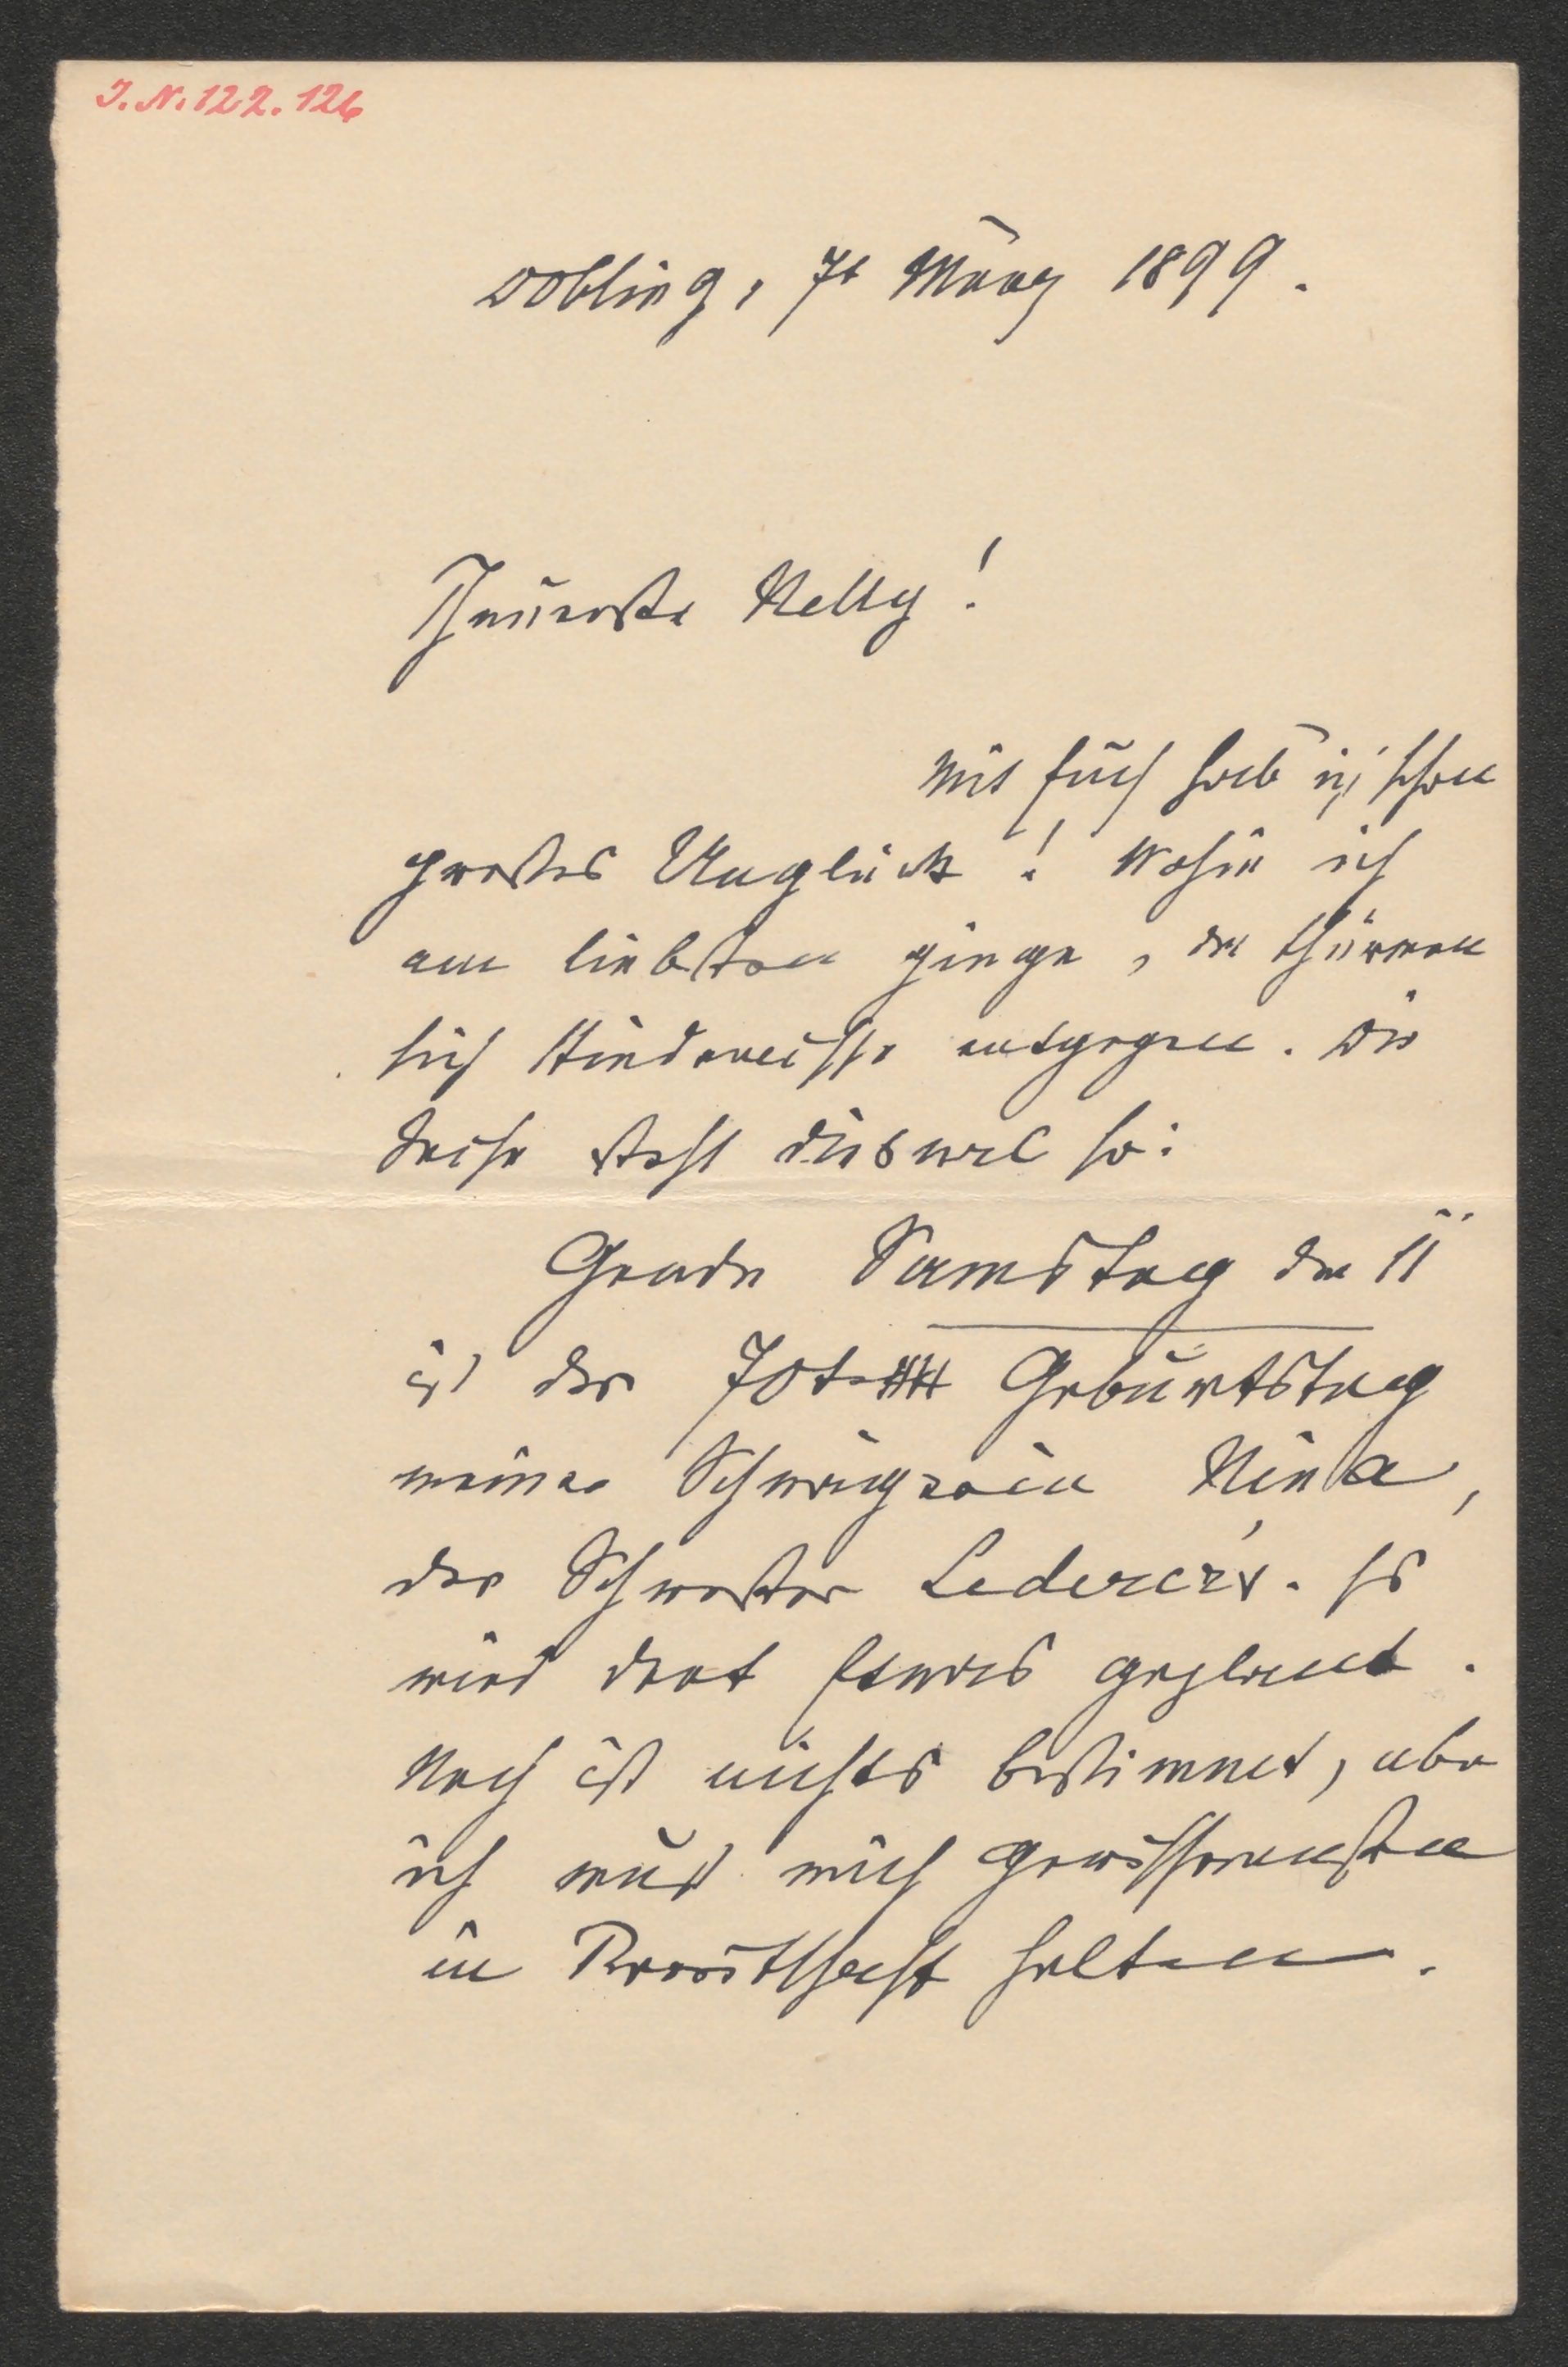 I.N. 122.126
Döbling, 7t März 1899.
Theuerste Nelly!
Mit Euch hab' ich schon
großes Unglück! Wohin ich
am liebsten ginge, da thürmen
sich Hindernisse entgegen. Die
Sache steht diesmal so:
Grade Samstag den 11
ist der 70te Geburtstag
meiner Schwägerin Nina,
der Schwester Lederer's. Es
wird dort Etwas geplant.
Noch ist nichts bestimmt, aber
ich muß mich
in halten.